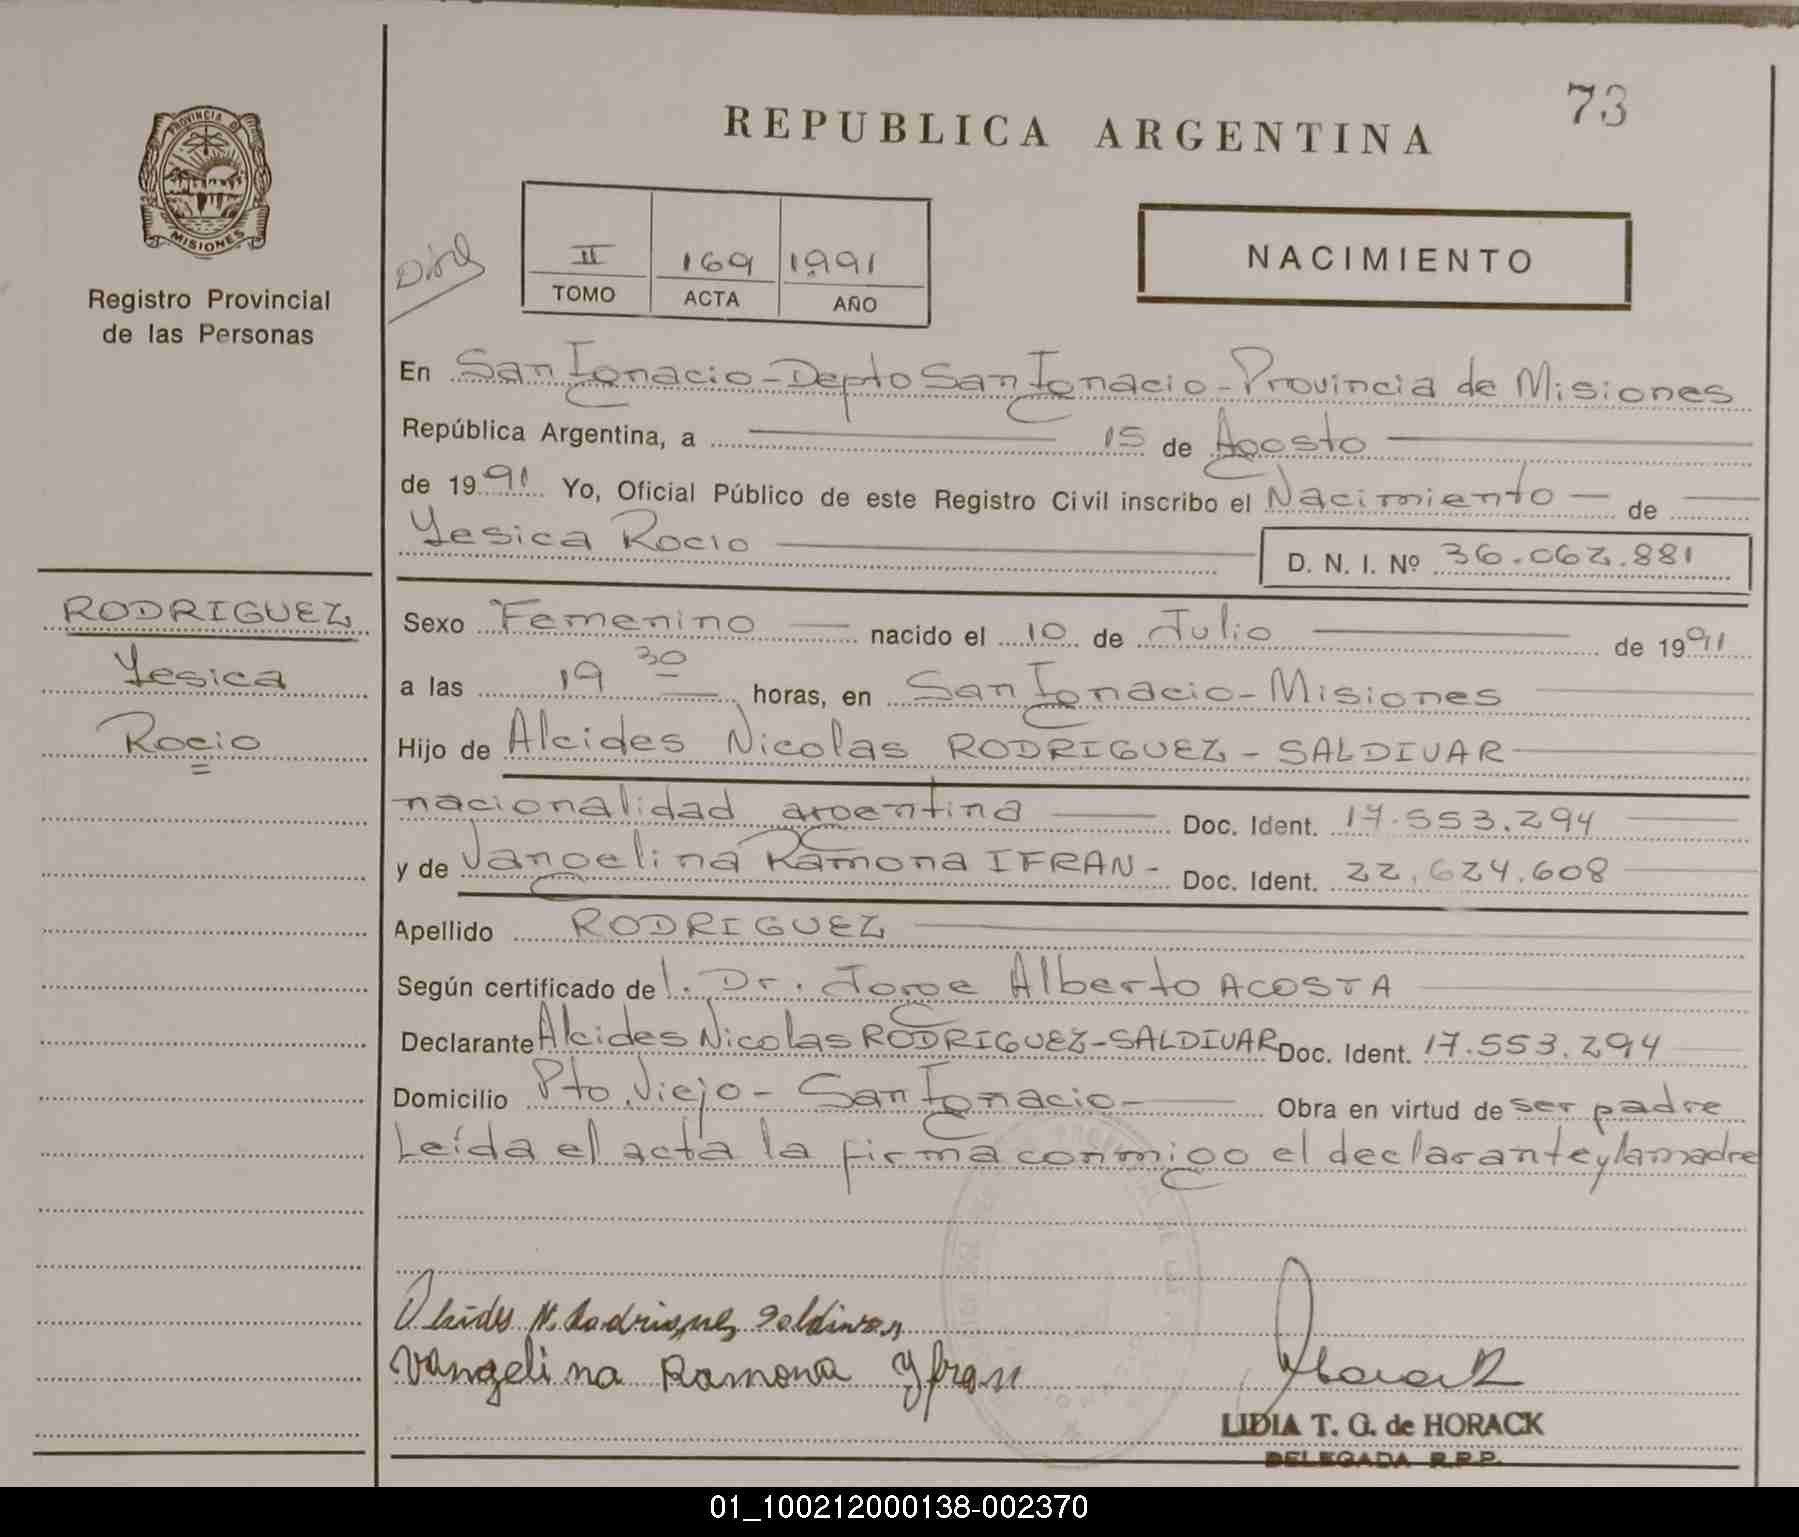 73
REPUBLICA ARGENTINA
PROVINCIA D
MISIONES
Registro Provincial
de las Personas
II 169 1991
TOMO ACTA AÑO
NACIMIENTO
En San Ignacio - Depto San Ignacio - Provincia de Misiones
República Argentina, a 15 de Agosto
de 1991 Yo, Oficial Público de este Registro Civil inscribo el Nacimiento de
Yesica Rocio D. N. I. Nº 36.062.881
RODRIGUEZ
Yesica
Rocio
Sexo Femenino nacido el 10 de Julio de 1991
a las 19 30 horas, en San Ignacio - Misiones
Hijo de Alcides Nicolas RODRIGUEZ - SALDIVAR
nacionalidad argentina Doc. Ident. 17.553.294
y de Vangelina Ramona IFRAN - Doc. Ident. 22.624.608
Apellido RODRIGUEZ
Según certificado del. Dr. Jorge Alberto ACOSTA
Declarante Alcides Nicolas RODRIGUEZ - SALDIVAR Doc. Ident. 17.553.294
Domicilio Pto. Viejo - San Ignacio - Obra en virtud de ser padre
Leída el acta la firma conmigo el declarante y la madre
Alcides N. Rodriguez Saldivar
Vangelina Ramona Yfran
Horack
LIDIA T. G. de HORACK
DELEGADA R.P.P.
01_100212000138-002370